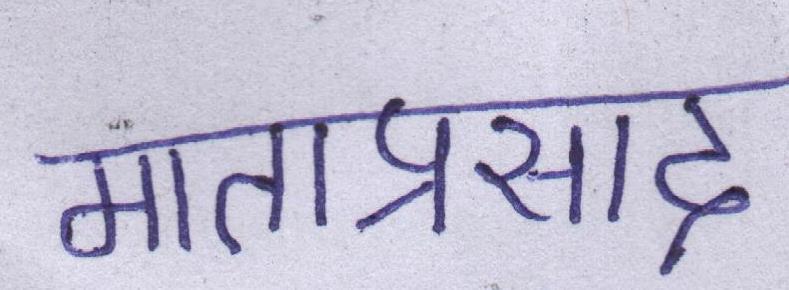 माताप्रसाद